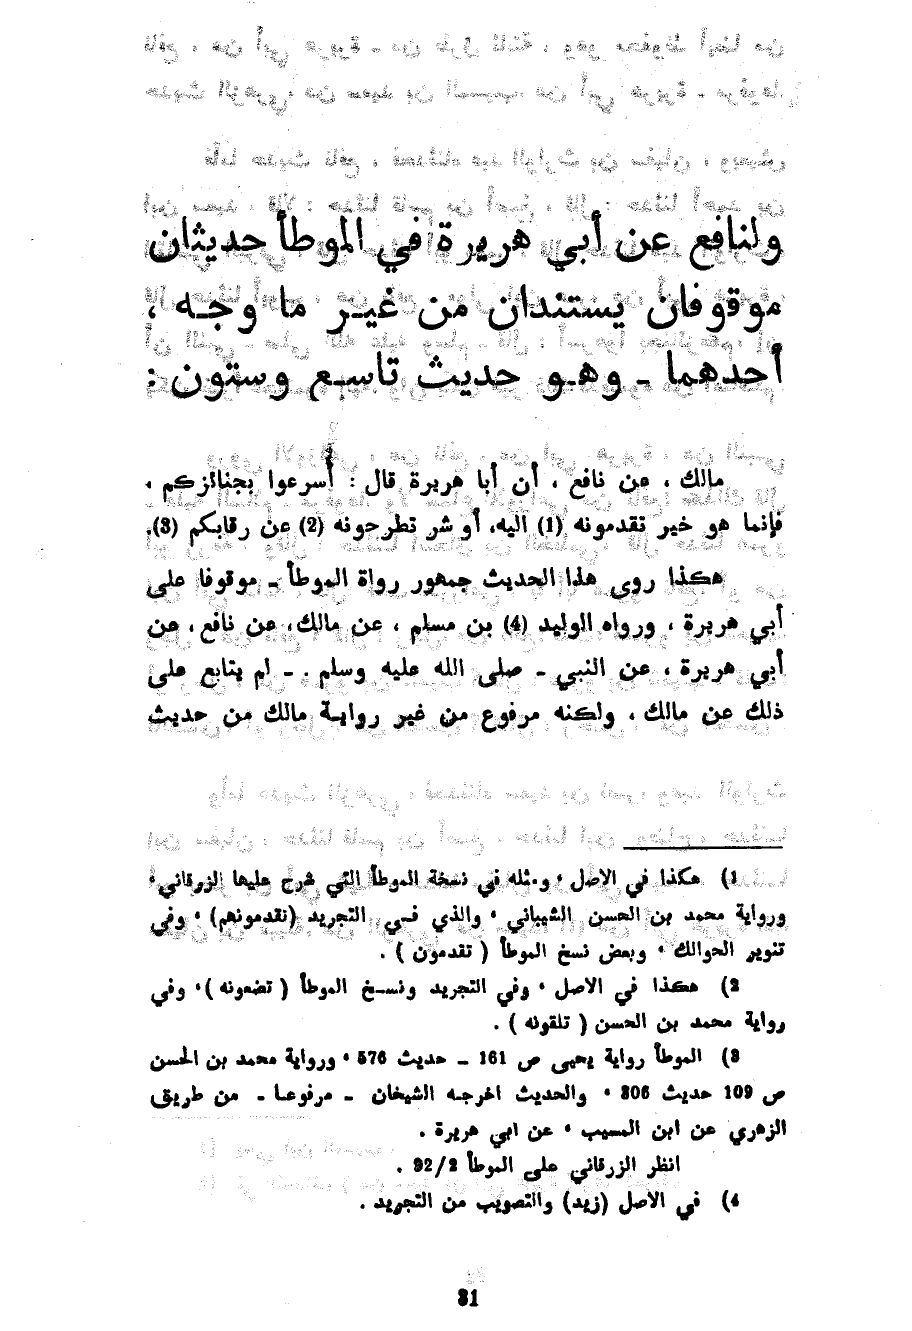 ولنافع عن أبي هريرة في الموطأ حديثان
موقوفان يستندان من غيـر ما وجـه ،
أحدهما ـ وهـو حديث تاسـع وستون :
مالك ، عن نافع ، أن أبا هريرة قال : أسرعوا بجنائزكم ،
فإنما هو خير تقدمونه (1) اليه، أو شر تطرحونه (2) عن رقابكم (3).
هكذا روى هذا الحديث جمهور رواة الموطأ ـ موقوفا على
أبي هريرة ، ورواه الوليد (4) بن مسلم ، عن مالك، عن نافع، عن
أبي هريرة ، عن النبي ـ صلى الله عليه وسلم . ـ لم يتابع على
ذلك عن مالك ، ولكنه مرفوع من غير روايـة مالك من حديث
1) هكذا في الاصل ، ومثله في نسخة الموطأ التي شرح عليها الزرقاني ،
ورواية محمد بن الحسن الشيباني ، والذي فـي التجريد (تقدمونهم) ، وفي
تنوير الحوالك ، وبعض نسخ الموطأ ( تقدمون ) .
2) هكذا في الاصل ، وفي التجريد ونسـخ الموطأ ( تضعونه ) ، وفي
رواية محمد بن الحسن ( تلقونه ) .
3) الموطأ رواية يحيى ص 161 ـ حديث 576 ، ورواية محمد بن الحسن
ص 109 حديث 306 ، والحديث اخرجـه الشيخان ـ مرفوعـا ـ من طريق
الزهري عن ابن المسيب ، عن ابي هريرة .
انظر الزرقاني على الموطأ 92/2 .
4) في الاصل (زيد) والتصويب من التجريد .
31